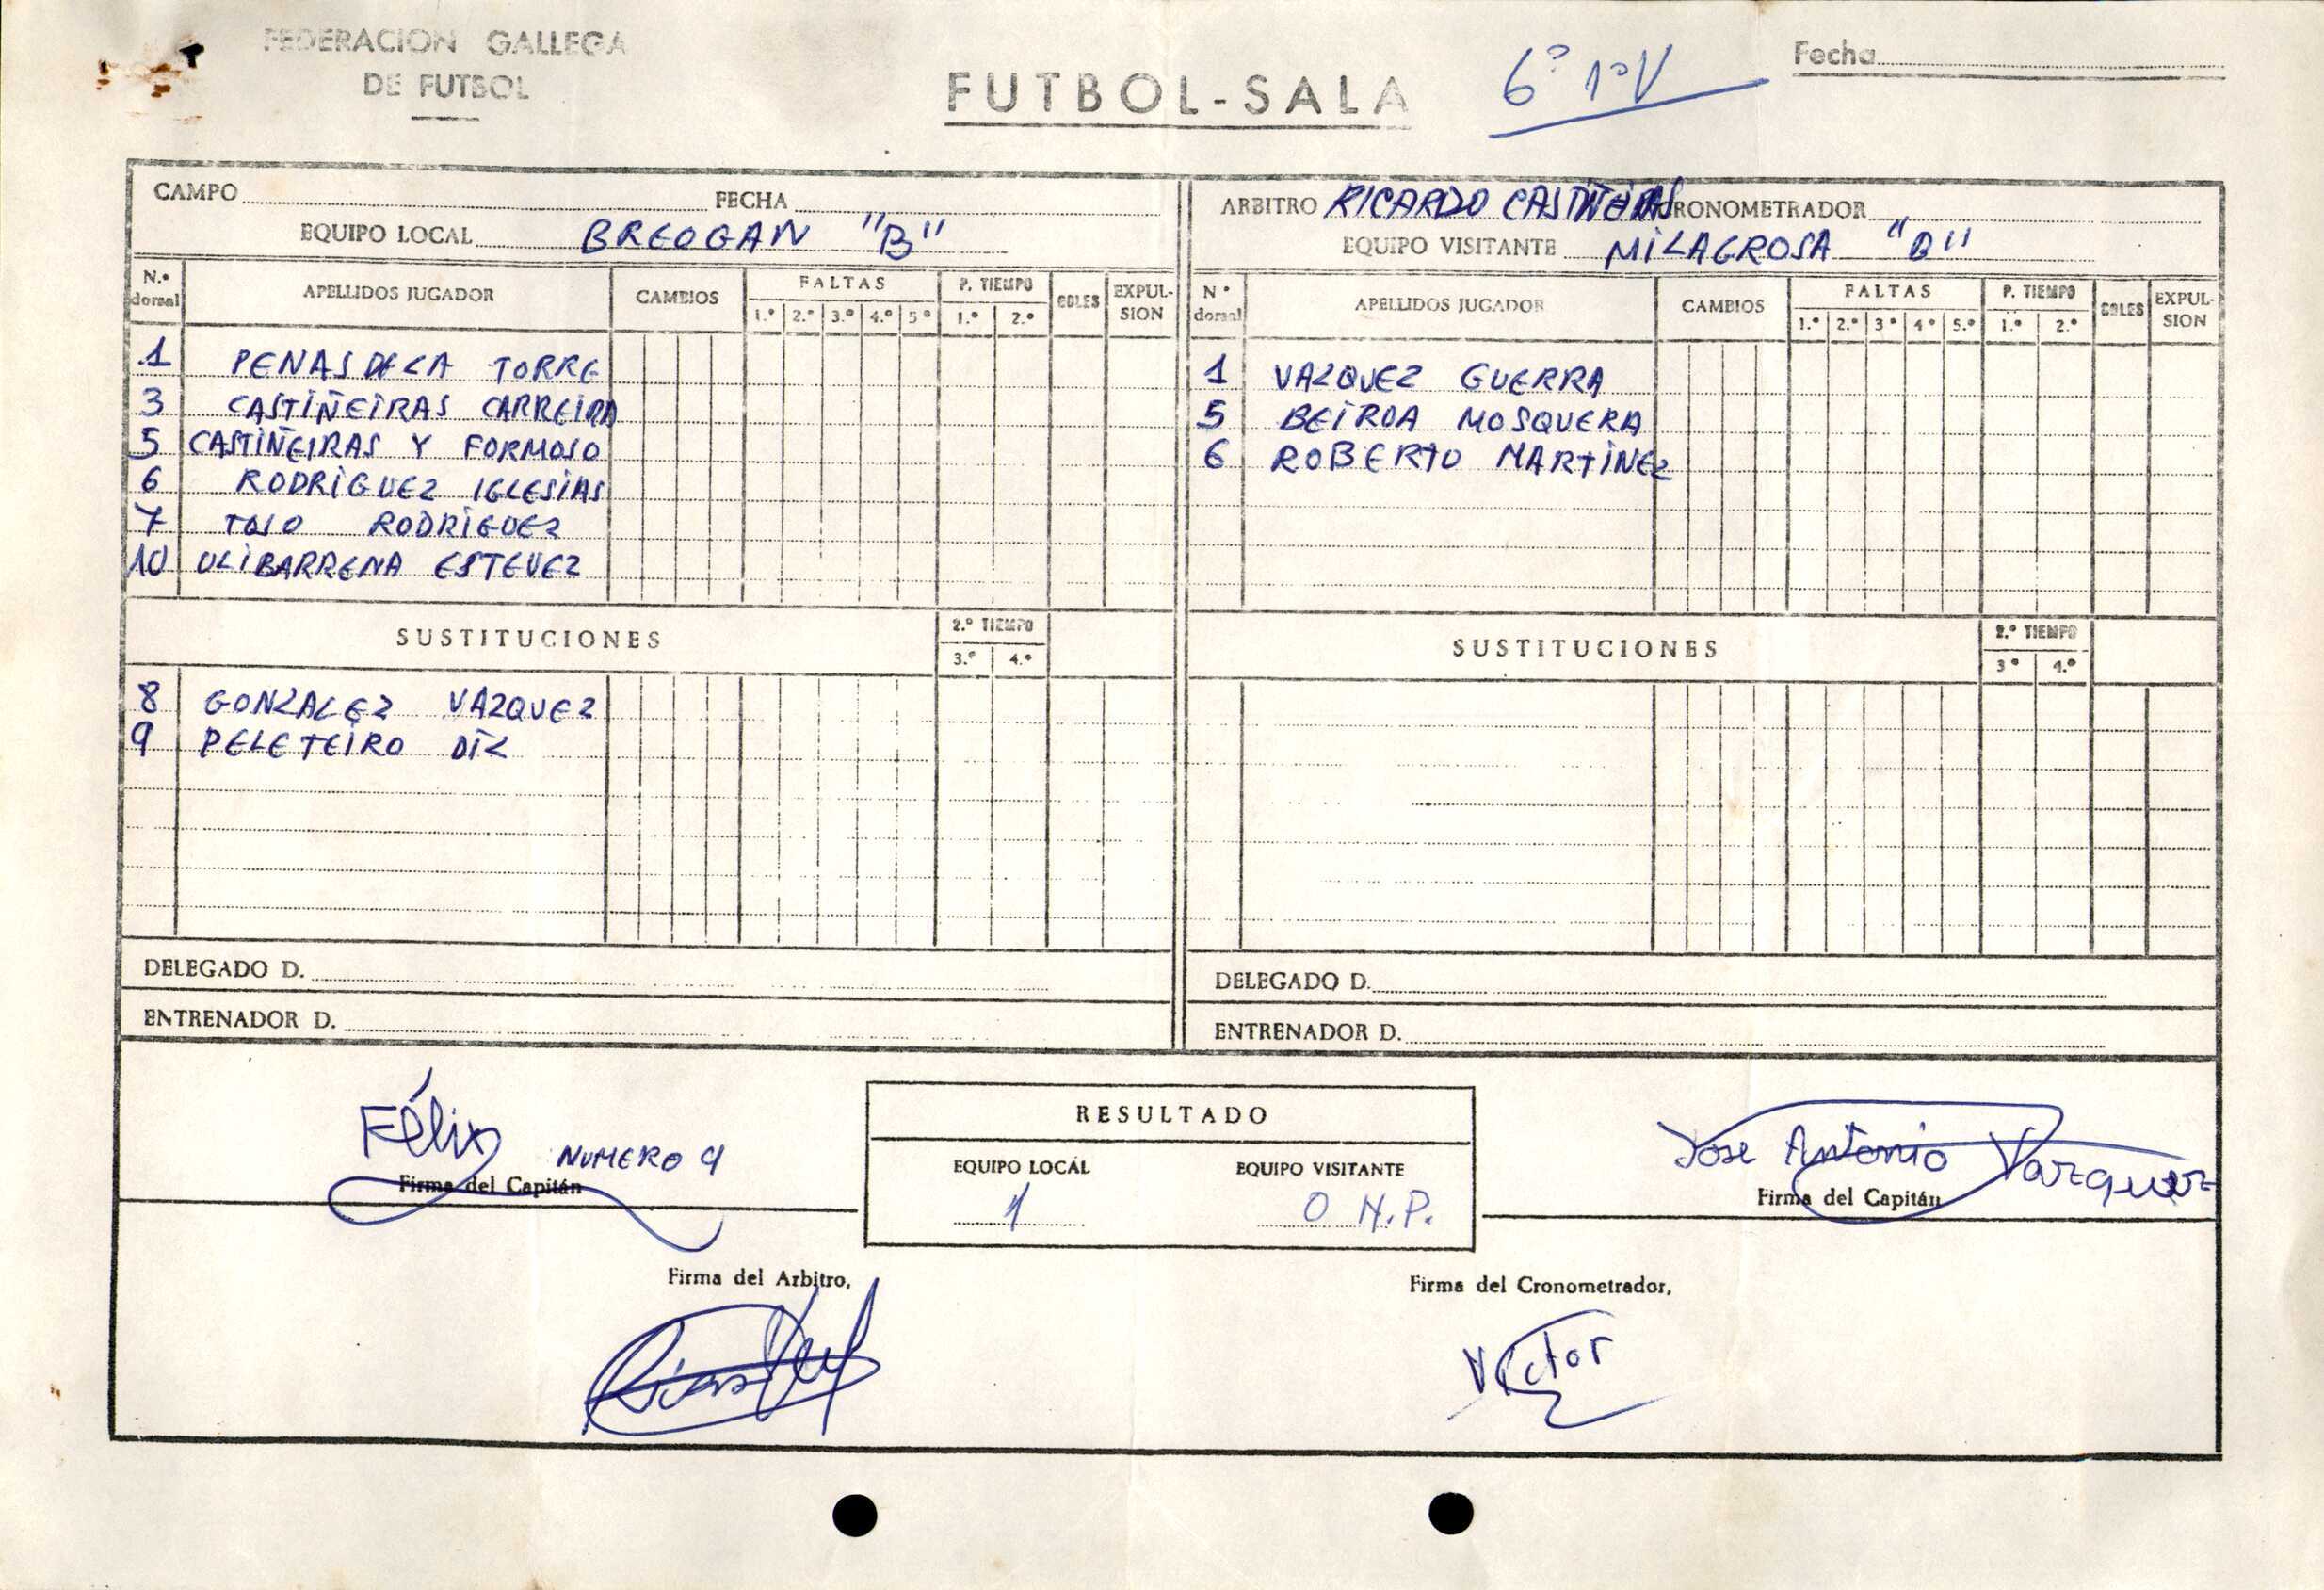 FEDERACION GALLEGA
DE FUTBOL
FUTBOL-SALA
6º 1ºV
Fecha
CAMPO FECHA
EQUIPO LOCAL BREOGAN "B"
ARBITRO RICARDO CASTIÑEIRAS CRONOMETRADOR
EQUIPO VISITANTE MILAGROSA "B"
N.º dorsal APELLIDOS JUGADOR CAMBIOS FALTAS 1.º 2.º 3.º 4.º 5º P. TIEMPO 1.º 2.º GOLES EXPULSION
1 PENAS DE LA TORRE
3 CASTIÑEIRAS CARREIRA
5 CASTIÑEIRAS Y FORMOSO
6 RODRIGUEZ IGLESIAS
7 TOSO RODRIGUEZ
10 OLIBARRENA ESTEVEZ
SUSTITUCIONES 2.º TIEMPO 3.º 4.º
8 GONZALEZ VAZQUEZ
9 PELETEIRO
DELEGADO D.
ENTRENADOR D.
N º dorsal APELLIDOS JUGADOR CAMBIOS FALTAS 1.º 2.º 3º 4º 5.º P. TIEMPO 1.º 2.º GOLES EXPULSION
1 VAZQUEZ GUERRA
5 BEIROA MOSQUERA
6 ROBERTO MARTINEZ
SUSTITUCIONES 2.º TIEMPO 3º 4.º
DELEGADO D.
ENTRENADOR D.
Félix NUMERO 9
Firma del Capitán
RESULTADO
EQUIPO LOCAL EQUIPO VISITANTE
1 0 N.P.
Jose Antonio Vazquez
Firma del Capitán
Firma del Arbitro,
Firma del Cronometrador,
Victor